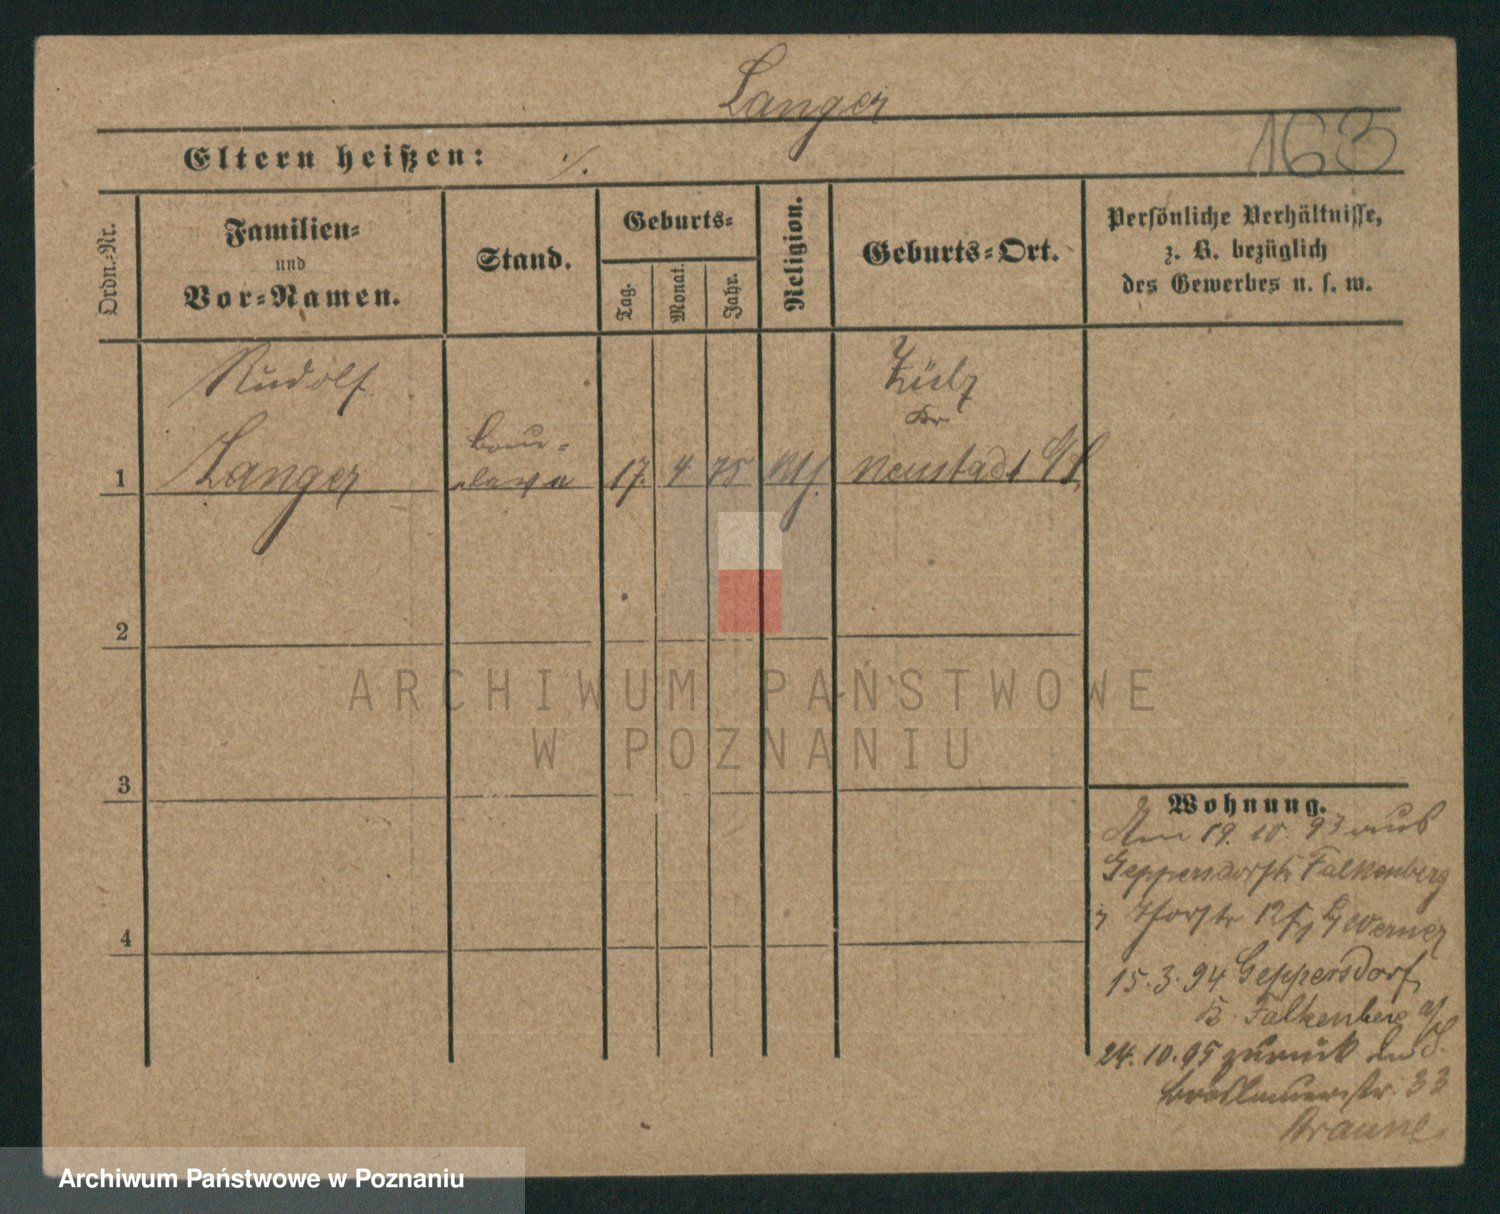 Langer
163
Eltern heißen: ./.
Ordn.-Nr.
Familien-
und
Vor-Namen.
Stand.
Geburts-
Tag.
Monat.
Jahr.
Religion.
Geburts-Ort.
Persönliche Verhältnisse,
z. B. bezüglich
des Gewerbes u. s. w.
Rudolf
Langer
Bau-
eleve
1
17. 4 75
Zülz
Kr
Neustadt O/S
2
3
4
ARCHIWUM PAŃSTWOWE
W POZNANIU
Wohnung.
Am 19. 10. 93 aus
Geppersdorf Kr Falkenberg
12 Werner
15. 3. 94 Geppersdorf
B. Falkenberg O/
24. 10. 95 zurück S.
Breslauerstr. 33
Braune
Archiwum Państwowe w Poznaniu